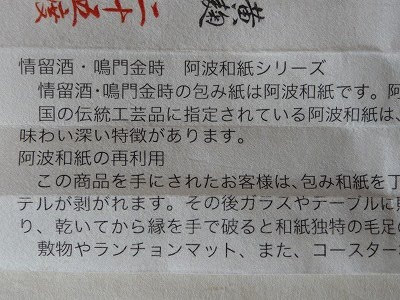 黄麹
二十五度
情留酒・鳴門金時　阿波和紙シリーズ
情留酒・鳴門金時の包み紙は阿波和紙です。阿
国の伝統工芸品に指定されている阿波和紙は、
味わい深い特徴があります。
阿波和紙の再利用
この商品を手にされたお客様は、包み和紙を丁
テルが剥がれます。その後ガラスやテーブルに敷
り、乾いてから縁を手で破ると和紙独特の毛足の
敷物やランチョンマット、また、コースター